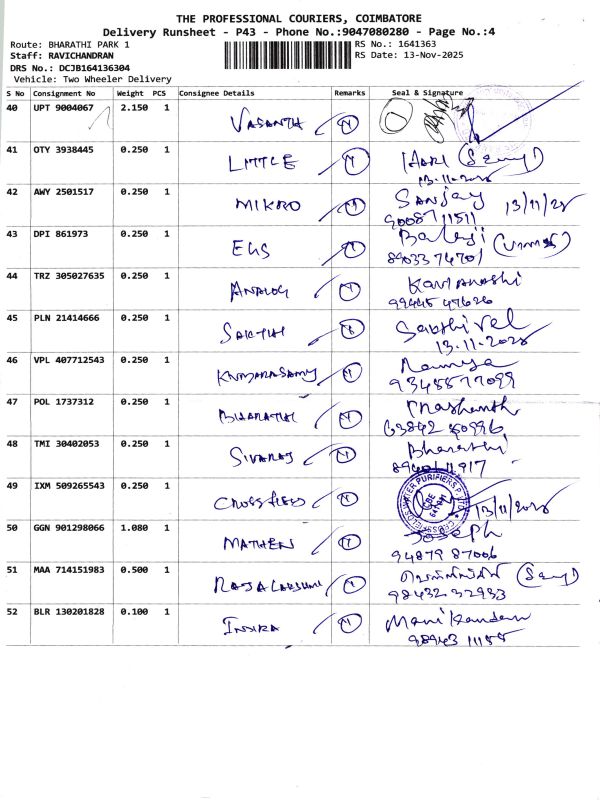 THE PROFESSIONAL COURIERS, COIMBATORE
Delivery Runsheet - P43 - Phone No.:9047080280 - Page No.:4
Route: BHARATHI PARK 1 RS No.: 1641363
Staff: RAVICHANDRAN RS Date: 13-Nov-2025
DRS No.: DCJB164136304
Vehicle: Two Wheeler Delivery
S No Consignment No Weight PCS Consignee Details Remarks Seal & Signature
40 UPT 9004067 2.150 1 VASANTH
41 OTY 3938445 0.250 1 LITTLE HARI
13.11.2025
42 AWY 2501517 0.250 1 MIKRO Sanjay 13/11/25
9008711511
43 DPI 861973 0.250 1 EGS Balaji
8903374701
44 TRZ 305027635 0.250 1 ANALOG
99445 47626
45 PLN 21414666 0.250 1 SAKTHI Sakthivel
13.11.2025
46 VPL 407712543 0.250 1 KUMARASAMY Ramya
9345577099
47 POL 1737312 0.250 1 BHARATHI Prashanth
63842 50996
48 TMI 30402053 0.250 1 SIVARAJ Bharathi
49 IXM 509265543 0.250 1 CROSSFIELDS 13/11/2025
50 GGN 901298066 1.080 1 MATHEW Joseph
94879 87006
51 MAA 714151983 0.500 1 RAJALAKSHMI
98432 32933
52 BLR 130201828 0.100 1 INDIRA Manikandan
98943 11155